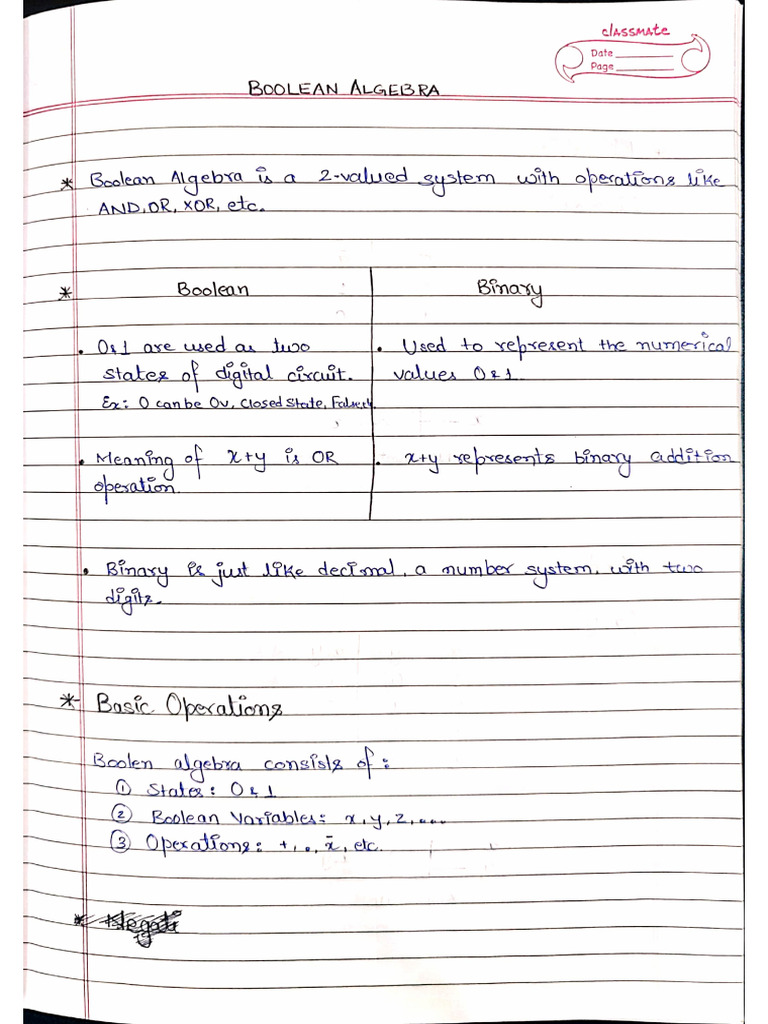 classmate
Date
Page
BOOLEAN ALGEBRA
* Boolean Algebra is a 2-valued system with operations like
AND, OR, XOR, etc.
* Boolean Binary
• 0&1 are used as two
states of digital circuit.
Ex: 0 can be 0v, Closed State, False,
• Used to represent the numerical
values 0 & 1.
• Meaning of x+y is OR
operation.
• x+y represents binary addition
• Binary is just like decimal, a number system, with two
digits.
* Basic Operations
Boolen algebra consists of:
① States: 0 & 1
② Boolean Variables: x, y, z, ...
③ Operations: +, ., x̄, etc.